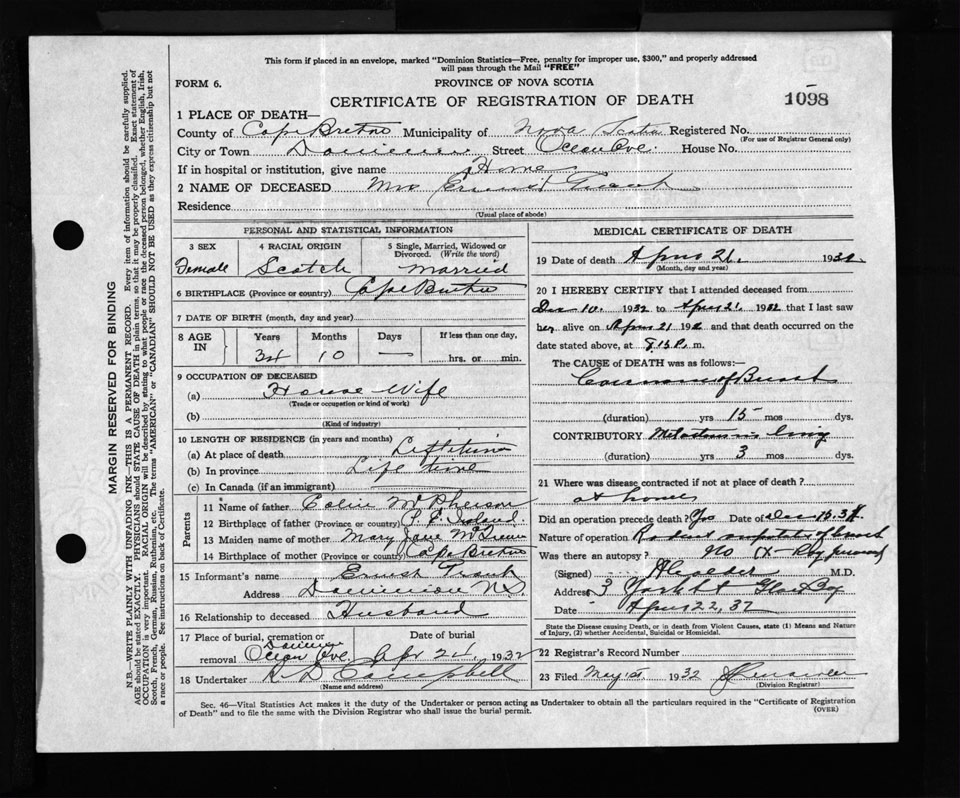 This form if placed in an envelope, marked "Dominion Statistics—Free, penalty for improper use, $300," and properly addressed
will pass through the Mail "FREE"
FORM 6. PROVINCE OF NOVA SCOTIA
CERTIFICATE OF REGISTRATION OF DEATH 1098
1 PLACE OF DEATH—
County of Cape Breton Municipality of Nova Scotia Registered No.
(For use of Registrar General only)
City or Town Dominion Street Ocean Ave. House No.
If in hospital or institution, give name Home
2 NAME OF DECEASED Mrs Ernest
Residence
(Usual place of abode)
PERSONAL AND STATISTICAL INFORMATION
3 SEX 4 RACIAL ORIGIN 5 Single, Married, Widowed or Divorced. (Write the word)
Female Scotch Married
6 BIRTHPLACE (Province or country) Cape Breton
7 DATE OF BIRTH (month, day and year)
8 AGE IN Years Months Days If less than one day,
34 10 — hrs. or min.
9 OCCUPATION OF DECEASED
(a) House Wife
(Trade or occupation or kind of work)
(b)
(Kind of industry)
10 LENGTH OF RESIDENCE (in years and months)
(a) At place of death Life time
(b) In province Life time
(c) In Canada (if an immigrant)
Parents
11 Name of father Colin McPherson
12 Birthplace of father (Province or country) P. E. Island
13 Maiden name of mother Mary Jane
14 Birthplace of mother (Province or country) Cape Breton
15 Informant's name Ernest
Address Dominion N.S.
16 Relationship to deceased Husband
17 Place of burial, cremation or removal Date of burial
Dominion
Ocean Ave. Apr 24, 1932
18 Undertaker Campbell
(Name and address)
MEDICAL CERTIFICATE OF DEATH
19 Date of death April 21, 1932
(Month, day and year)
20 I HEREBY CERTIFY that I attended deceased from
Dec 10, 1932 to April 21 1932 that I last saw
her alive on April 21 1932 and that death occurred on the
date stated above, at 8.15 P. m.
The CAUSE OF DEATH was as follows:—
Carcinoma of Breast
(duration) yrs 15 mos dys.
CONTRIBUTORY Metastasis in lung
(duration) yrs 3 mos dys.
21 Where was disease contracted if not at place of death?
at home
Did an operation precede death? Yes Date of Dec
Nature of operation Radical amputation of breast
Was there an autopsy? No (X-Ray
(Signed) M.D.
Address 3 York St Glace Bay
Date April 22, 32
State the Disease causing Death, or in death from Violent Causes, state (1) Means and Nature
of Injury, (2) whether Accidental, Suicidal or Homicidal.
22 Registrar's Record Number
23 Filed May 1st 1932
(Division Registrar)
Sec. 46—Vital Statistics Act makes it the duty of the Undertaker or person acting as Undertaker to obtain all the particulars required in the "Certificate of Registration
of Death" and to file the same with the Division Registrar who shall issue the burial permit. (OVER)
MARGIN RESERVED FOR BINDING
N.B.—WRITE PLAINLY WITH UNFADING INK—THIS IS A PERMANENT RECORD. Every item of information should be carefully supplied.
AGE should be stated EXACTLY. PHYSICIANS should STATE CAUSE OF DEATH in plain terms, so that it may be properly classified. Exact statement of
OCCUPATION is very important. RACIAL ORIGIN will be described by stating to what people or race the deceased person belonged, whether English, Irish,
Scotch, French, German, Russian, Ruthenian, etc. The terms "AMERICAN" or "CANADIAN" SHOULD NOT BE USED as they express citizenship but not
a race or people. See instructions on back of Certificate.